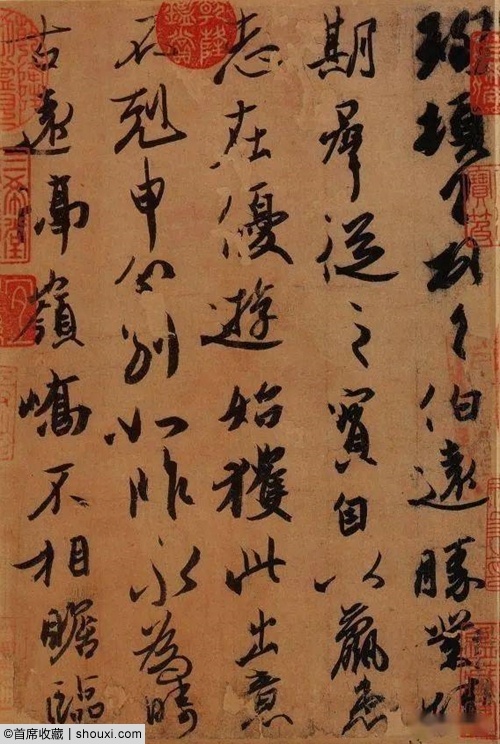 珣頓首頓首伯遠勝業情
期羣從之寶自以羸患
志在優遊始獲此出意
不剋申分別如昨永為疇
古遠隔嶺嶠不相瞻臨
乾隆鑑賞
三希堂
首席收藏 | shouxi.com